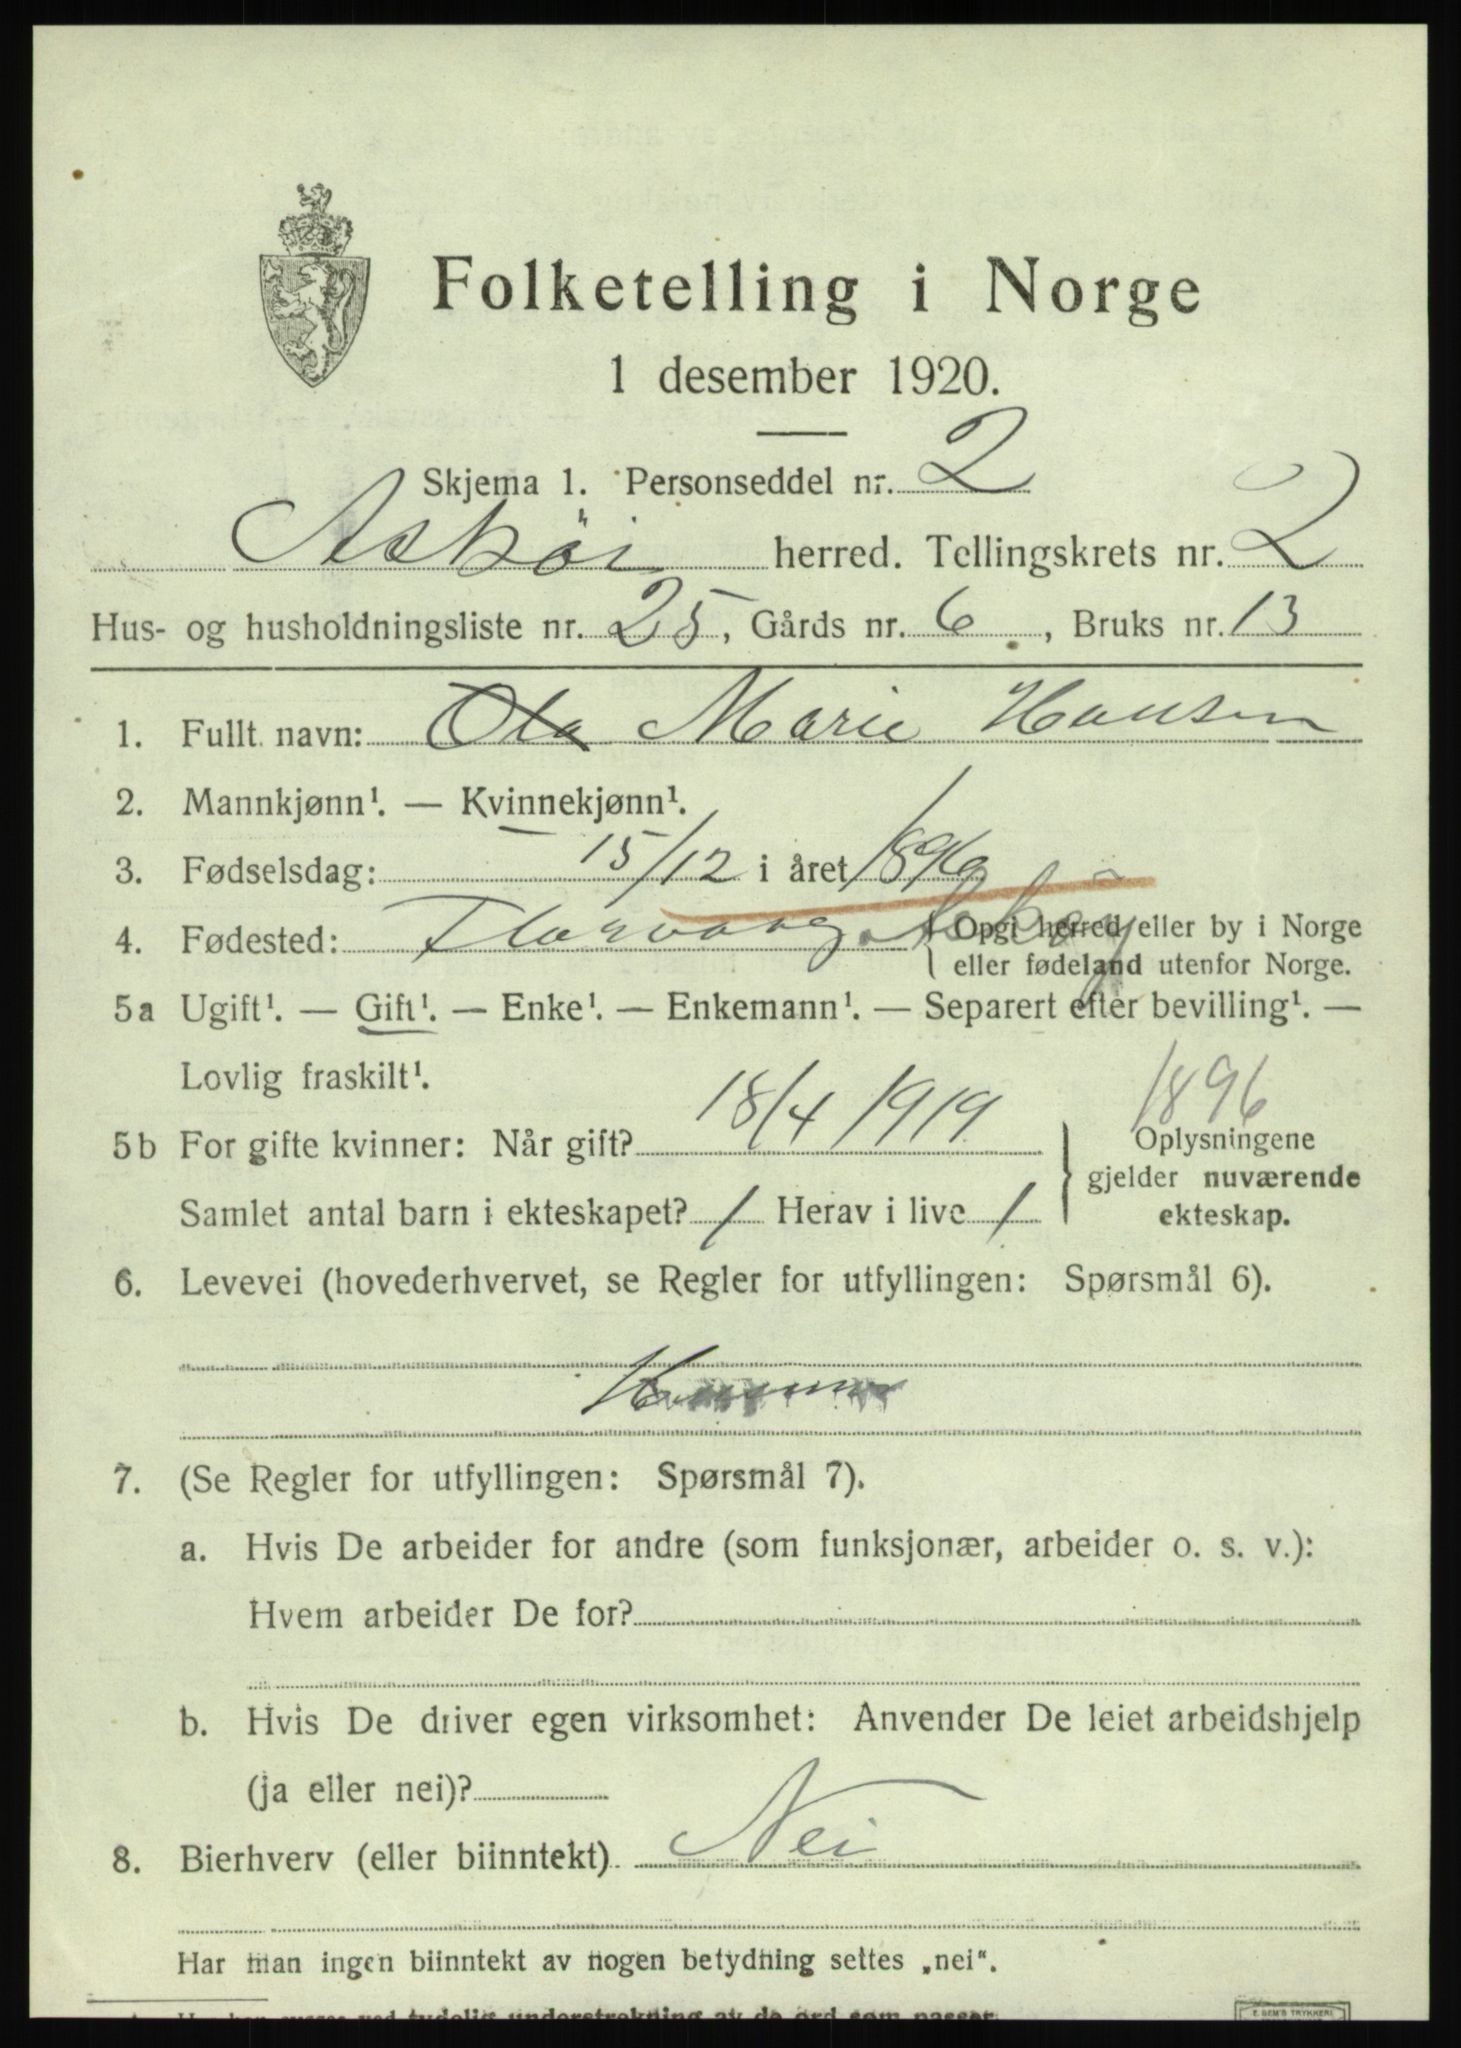 Folketelling i Norge
1 desember 1920.
Skjema 1. Personseddel nr. 2
Askøi herred. Tellingskrets nr. 2
Hus- og husholdningsliste nr. 25, Gårds nr. 6, Bruks nr. 13
1. Fullt navn: Ola Marie Hansen
2. Mannkjønn¹. — Kvinnekjønn¹.
3. Fødselsdag: 15/12 i året 1896
4. Fødested: Florvaag Askøy { Opgi herred eller by i Norge
eller fødeland utenfor Norge.
5a Ugift¹. — Gift¹. — Enke¹. — Enkemann¹. — Separert efter bevilling¹. —
Lovlig fraskilt¹.
1896
5b For gifte kvinner: Når gift? 18/4 1919 } Oplysningene
gjelder nuværende
Samlet antal barn i ekteskapet? 1 Herav i live 1 ekteskap.
6. Levevei (hovederhvervet, se Regler for utfyllingen: Spørsmål 6).
7. (Se Regler for utfyllingen: Spørsmål 7).
a. Hvis De arbeider for andre (som funksjonær, arbeider o. s. v.):
Hvem arbeider De for?
b. Hvis De driver egen virksomhet: Anvender De leiet arbeidshjelp
(ja eller nei)?
8. Bierhverv (eller biinntekt) Nei
Har man ingen biinntekt av nogen betydning settes „nei“.
ved tydelig understrekning av de ord som passer